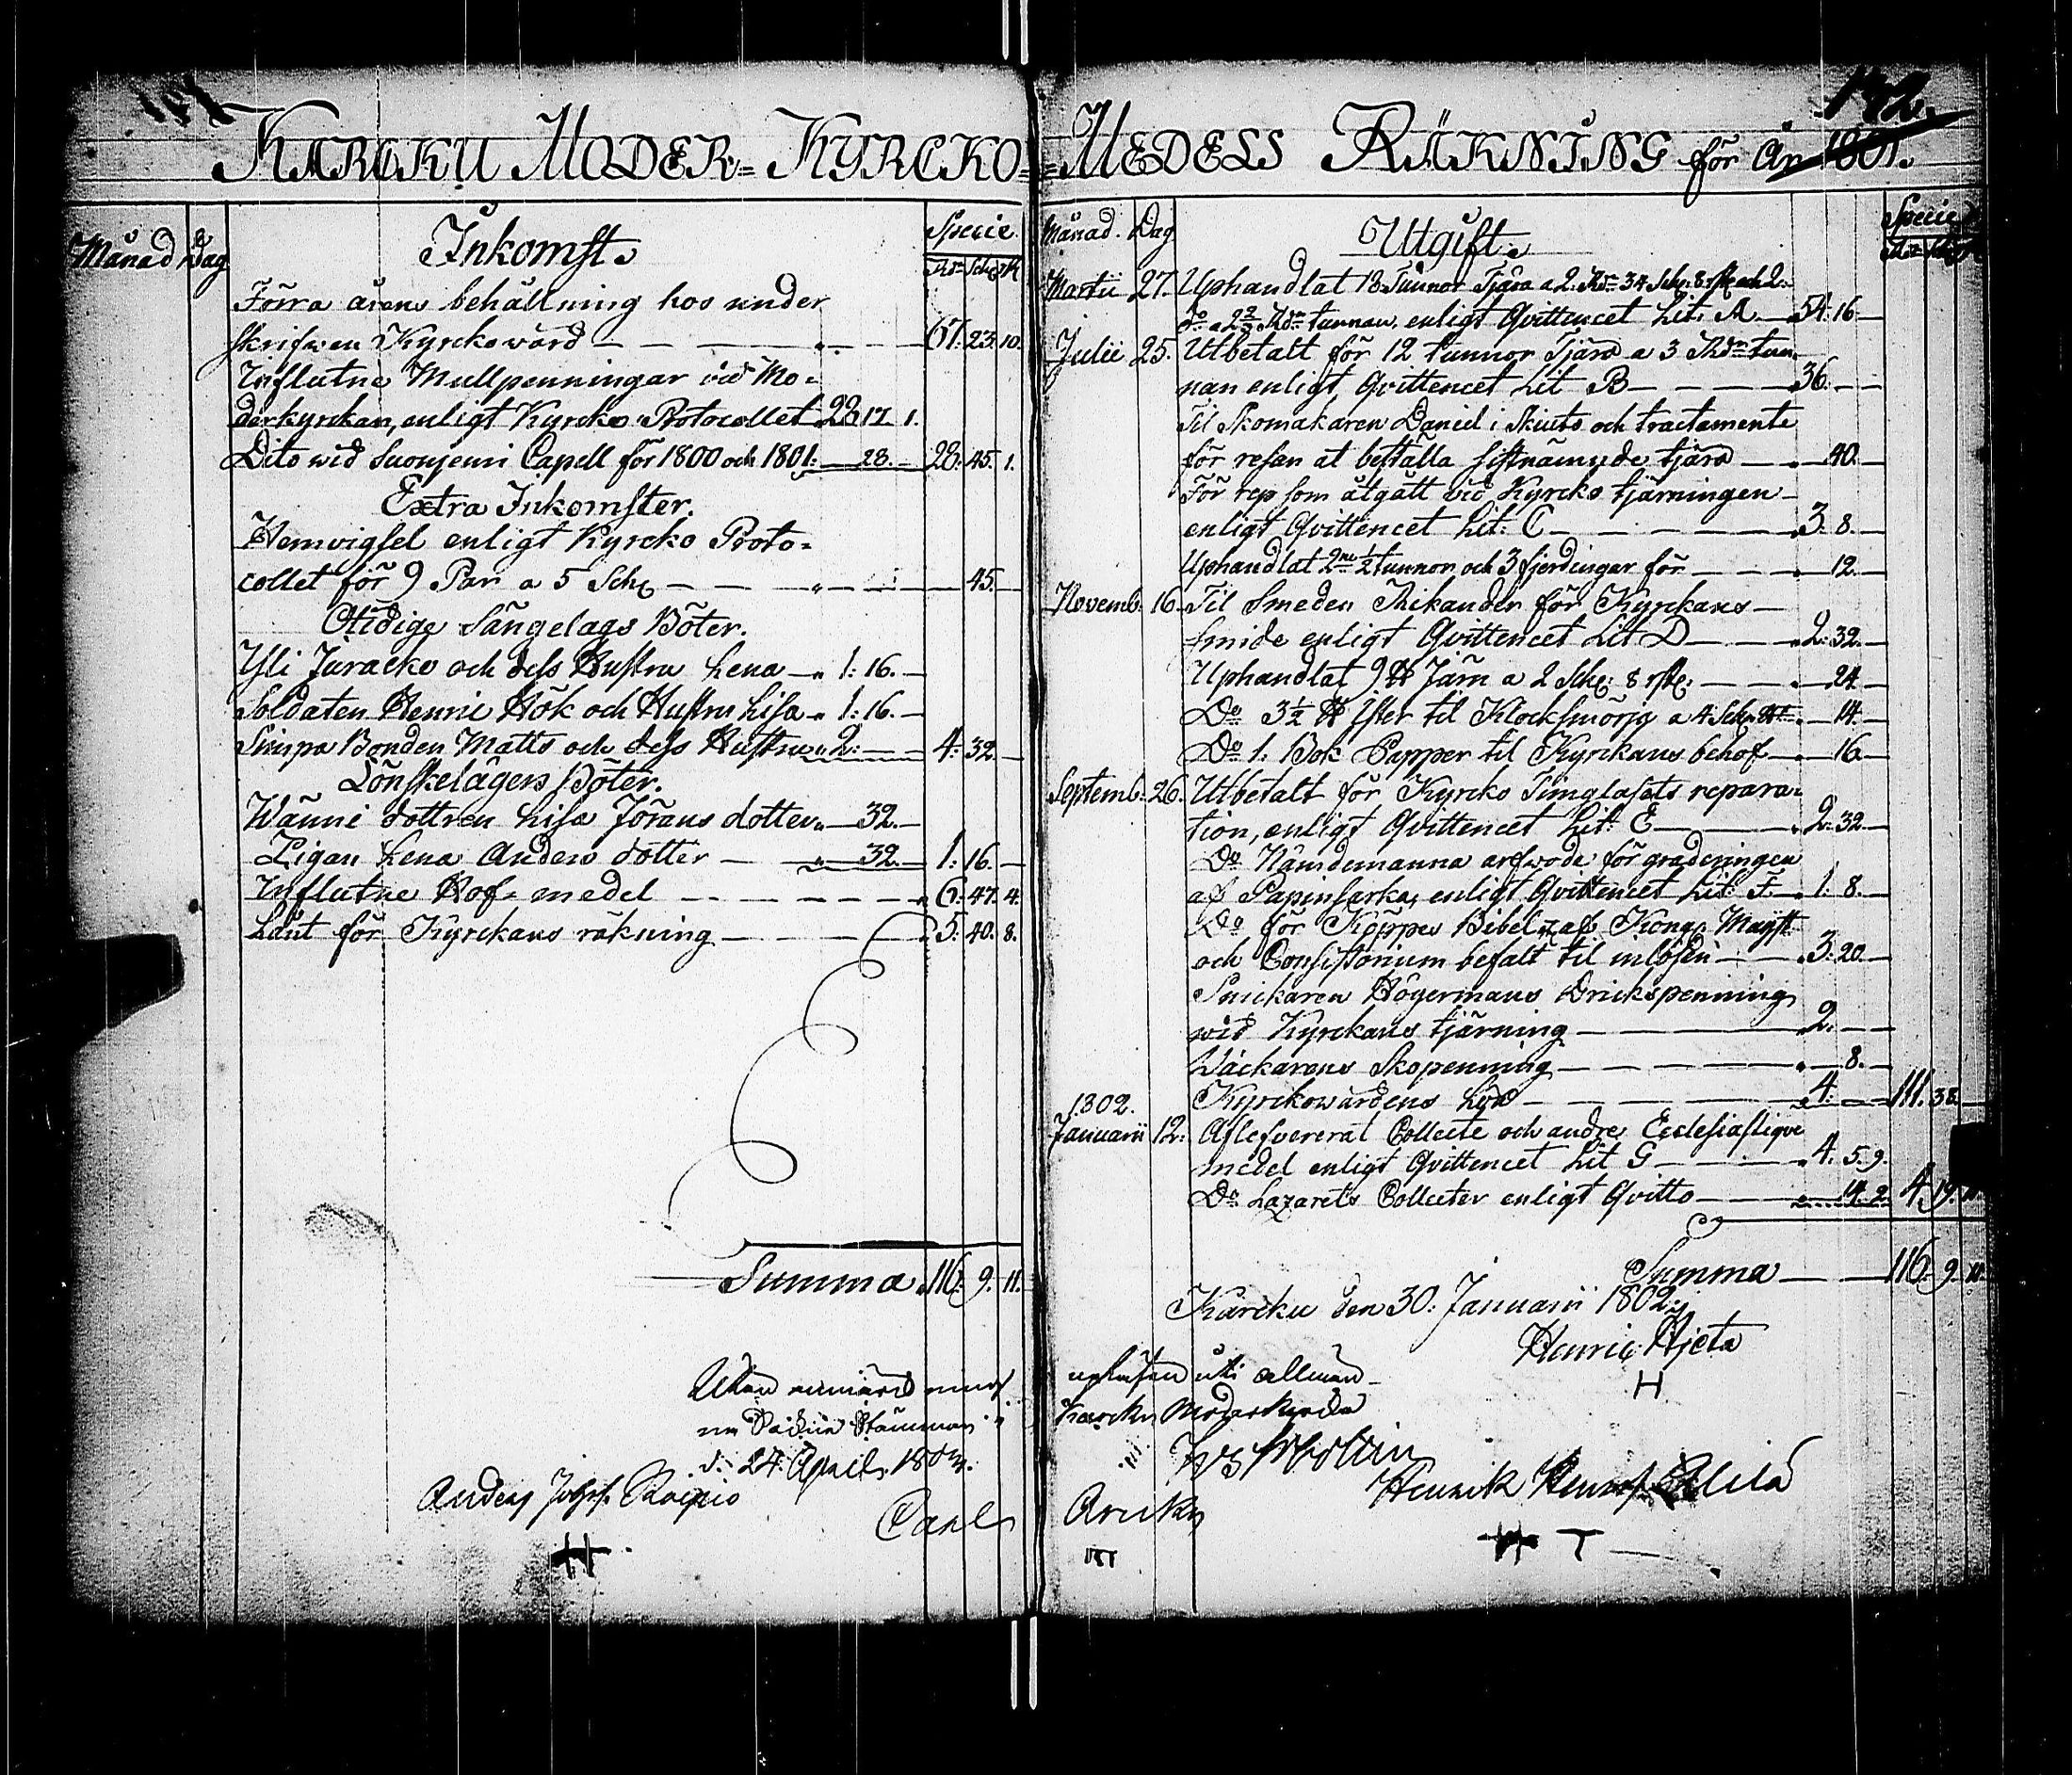 142.
KARCKU MODER= KYRCKO= MEDELS RÄKNING för År 1801.
Månad Dag Inkomst. Specie
Rdr Sch. rst
Förra årens behållning hos under
skrifwen Kyrckowärd — 67. 23. 10.
Influtne Mullpenningar vid Mo-
derkyrckan, enligt Kyrcko Protocollet 28 17. 1.
Dito wid Suonjemi Capell för 1800 och 1801: — 28. — 28. 45. 1.
Extra Inkomster.
Hemvigsel enligt Kyrcko Proto=
collet för 9 Par a 5 Sch — 45. —
Otidige Sängelags Böter.
Yli Juracko och dess Hustru Lena — 1: 16. —
Soldaten Henric Hök och Hustru Lisa — 1: 16. —
Simpa Bonden Matts och dess Hustru 2: — 4: 32. —
Lönskelägers Böter.
Wänni dottren Lisa Jörans dotter — 32. —
Pigan Lena Anders dotter — 32. — 1: 16. —
Influtne Hof= medel — 6: 47. 4.
Lånt för Kyrckans räkning — 5: 40. 8.
Summa 116. 9. 11.
uti allmän
d. 24 April
Anders Josephs.
Carl
Månad. Dag Utgift. Specie
Martii 27. Uphandlat 18 Tunnor Tjära a 2: Rdr 34 Sch: 8 rst och 2:
do a 2 2/3 Rdr tunnan, enligt Qvittencet Lit: A. — 54: 16 —
Julii 25. Utbetalt för 12 tunnor Tjära a 3 Rdr tun-
nan enligt Qvittencet Lit B — 36. —
Til Skomakaren Daniel i Skiuts och tractamente
för resan at beställa sistnämnde tjära — 40. —
För rep som åtgått vid Kyrcko tjärningen —
enligt Qvittencet Lit: C — 3: 8. —
Uphandlat 2ne 1/2 tunnor och 3 fjerdingar för — 12. —
Novemb: 16. Til Smeden Thikander för Kyrckans —
smide enligt Qvittencet Lit D — 2: 32. —
Uphandlat 9 ℔ Järn a 2 Sch: 8 rst: — 24 —
Do 3 1/2 ℔ Ister til Klocksmörje a 4 Sch — 14. —
Do 1. Bok Papper til Kyrckans behof — 16. —
Septemb: 26. Utbetalt för Kyrcko Timglasets repara-
tion, enligt Qvittencet Lit: E — 2: 32 —
Do Nämdemanna arfwode för graderingen
af Papinsarka, enligt Qvittencet Lit: F. 1: 8. —
Do för Kyrpes Bibel, af Kong. Mayst
och Consistorium befalt til inlösen — 3: 20. —
Snickaren Högermans Drickspenning
wid Kyrckans tjärning — 2. —
Wäckarens Skopenning — 8. —
Kyrckowärdens Lön — 4: — 111. 38. —
1802.
Januarii 12: Aflefvererat Collecte och andre Ecclesiastique
medel enligt Qvittencet Lit G — 4. 5. 9.
Do Lazarets Collecter enligt Qvitto — 14. 2. 4 19. 11.
Summa — 116. 9. 11.
Karcku den 30: Januarii 1802.
Henric Hjeta
H
Karcku Moderkyrcka
Henrik
H T